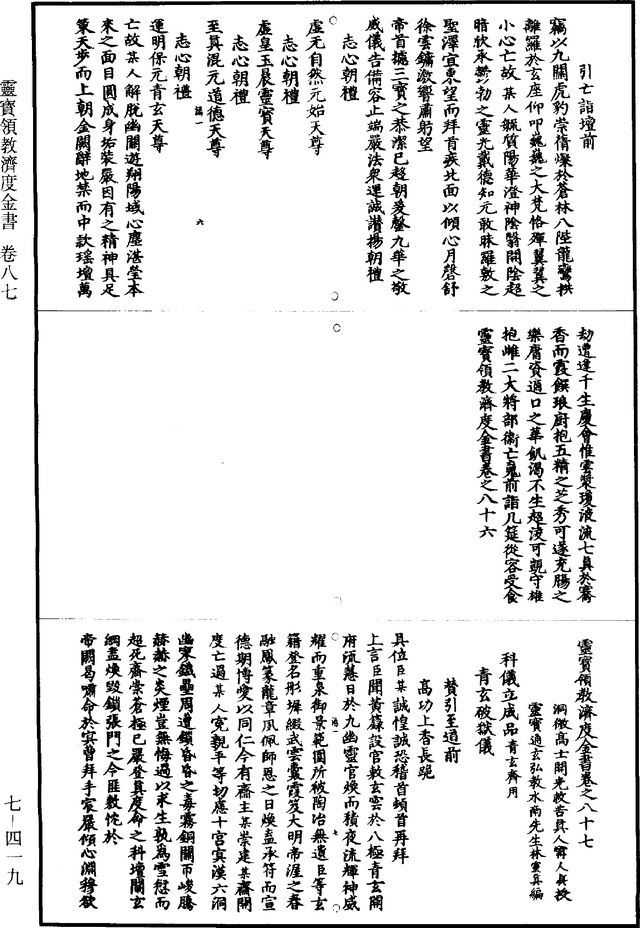 引亡詣壇前
竊以九關虎豹崇脩燦於蒼林八陛龍鸞拱
離羅於玄座仰叩巍巍之大梵恪殫翼翼之
小心亡故某人毓質陽華澄神陰翳閟陰超
暗狀承鬱勃之靈光戴德知元敢昧羅敷之
聖澤宣東望而拜首疾北面以傾心月磬舒
徐雲鏞激響肅躬望
帝首攄三寶之恭潔已趨朝爰罄九華之敬
威儀告備容止端嚴法衆運誠讚揚朝禮
志心朝禮
虛无自然元始天尊
志心朝禮
虛皇玉晨靈寶天尊
志心朝禮
至真混元道德天尊
六
志心朝禮
運明保元青玄天尊
亡故某人解脫幽關遊翔陽域心塵湛瑩本
來之面目圓成身垢裝嚴固有之精神具足
策天步而上朝金闕辭地禁而申款瑤壇萬
劫遭逢千生慶會惟雲漿瓊液流七真於騫
香而霞饌琅廚抱五精之芝秀可遂充腸之
樂庸資適口之華飢渴不生超淩可覬守雄
抱雌二大將部衛亡䰟前詣几筵從容受食
靈寶領教濟度金書卷之八十六
靈寶領教濟度金書卷之八十七
洞微高士開光救苦真人寗全真授
靈寶通玄弘教水南先生林靈真編
科儀立成品青玄齋用
青玄破獄儀
贊引至道前
高功上香長跪
具位臣某誠惶誠恐稽首頓首再拜
上言臣聞黃籙設官敕玄雲於八極青玄開
府流慧日於九幽靈官煥而積夜流輝神威
耀而重泉御景範圍所被陶冶無遺臣等玄
七
籍登名彤墀綴武雲囊霞笈大明帝渥之春
融鳳篆龍章夙佩師恩之日煥盍承符而宣
德期博愛以同仁今有齋主某崇建某齋關
度亡過某人冤親平等切慮十宮寘漠六洞
幽寒鐵壘周遭鎖昏昏之毒霧銅關帀峻騰
赫赫之炎煙豈無悔過以求生孰為雪愆而
超死齋崇蒼極已嚴登真度命之科壇闢玄
綱盍煥毀鎖張門之令匪敷忱於
帝闕曷嘯命於冥曹拜手宸嚴傾心淵穆欲
靈寶領教濟度金書　卷八七
七－四一九